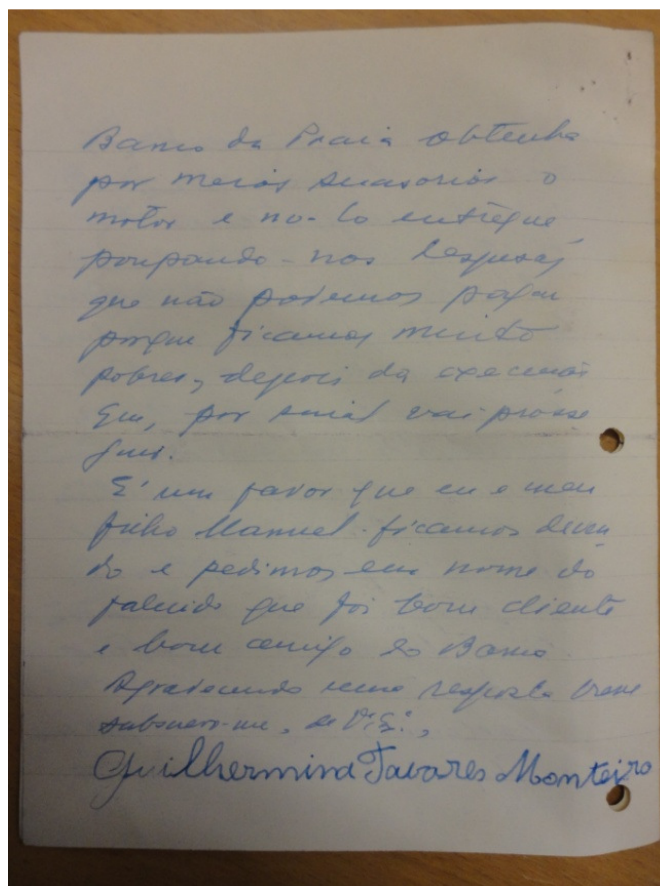 Banco da Praia obtenha
por meios suasorios o
motor e no-lo entregue
poupando-nos despesas
que não podemos pagar
porque ficamos muito
pobres, depois da execução
que, por sinal vai prosse
guir.
E' um favor que eu e meu
filho Manuel ficamos deven
do e pedimos em nome do
falecido que foi bom cliente
e bom amigo do Banco
Agradecendo uma resposta breve
subscrevo-me, de V. Ex.,
Guilhermina Tavares Monteiro